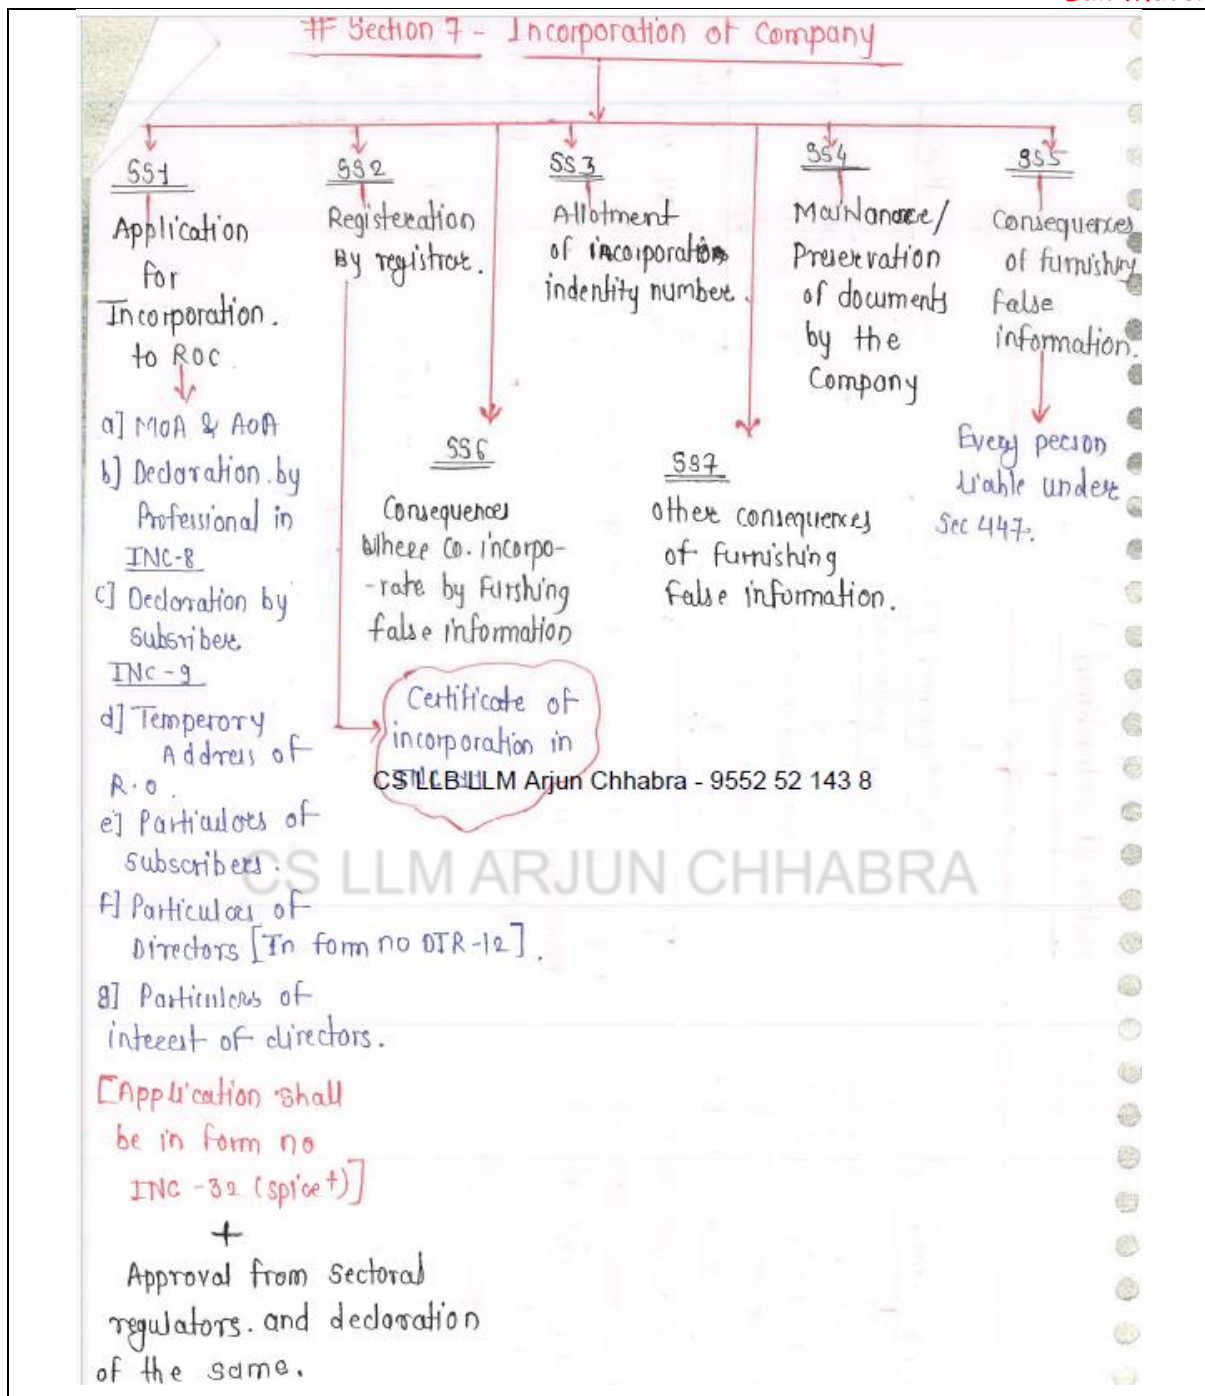 # Section 7 - Incorporation of Company
SS1
Application
for
Incorporation.
to ROC
a] MOA & AOA
b] Declaration by
Professional in
INC-8
c] Declaration by
Subsriber
INC-9
d] Temperory
Address of
R.O.
e] Particulars of
Subscribers.
f] Particulars of
Directors [In form no DIR-12].
g] Particulers of
interest of directors.
[Application shall
be in form no
INC-32 (spice+)]
+
Approval from Sectoral
regulators. and declaration
of the same.
SS2
Registeration
By registrar.
Certificate of
incorporation in
SS3
Allotment
of incorporation
indentity number.
SS4
Maintanance/
Preservation
of documents
by the
Company
SS5
Consequences
of furnishing
false
information.
Every person
liable under
Sec 447.
SS6
Consequences
Where Co. incorpo-
-rate by Furshing
false information
SS7
other consequences
of furnishing
False information.
CS LLB LLM Arjun Chhabra - 9552 52 143 8
CS LLM ARJUN CHHABRA